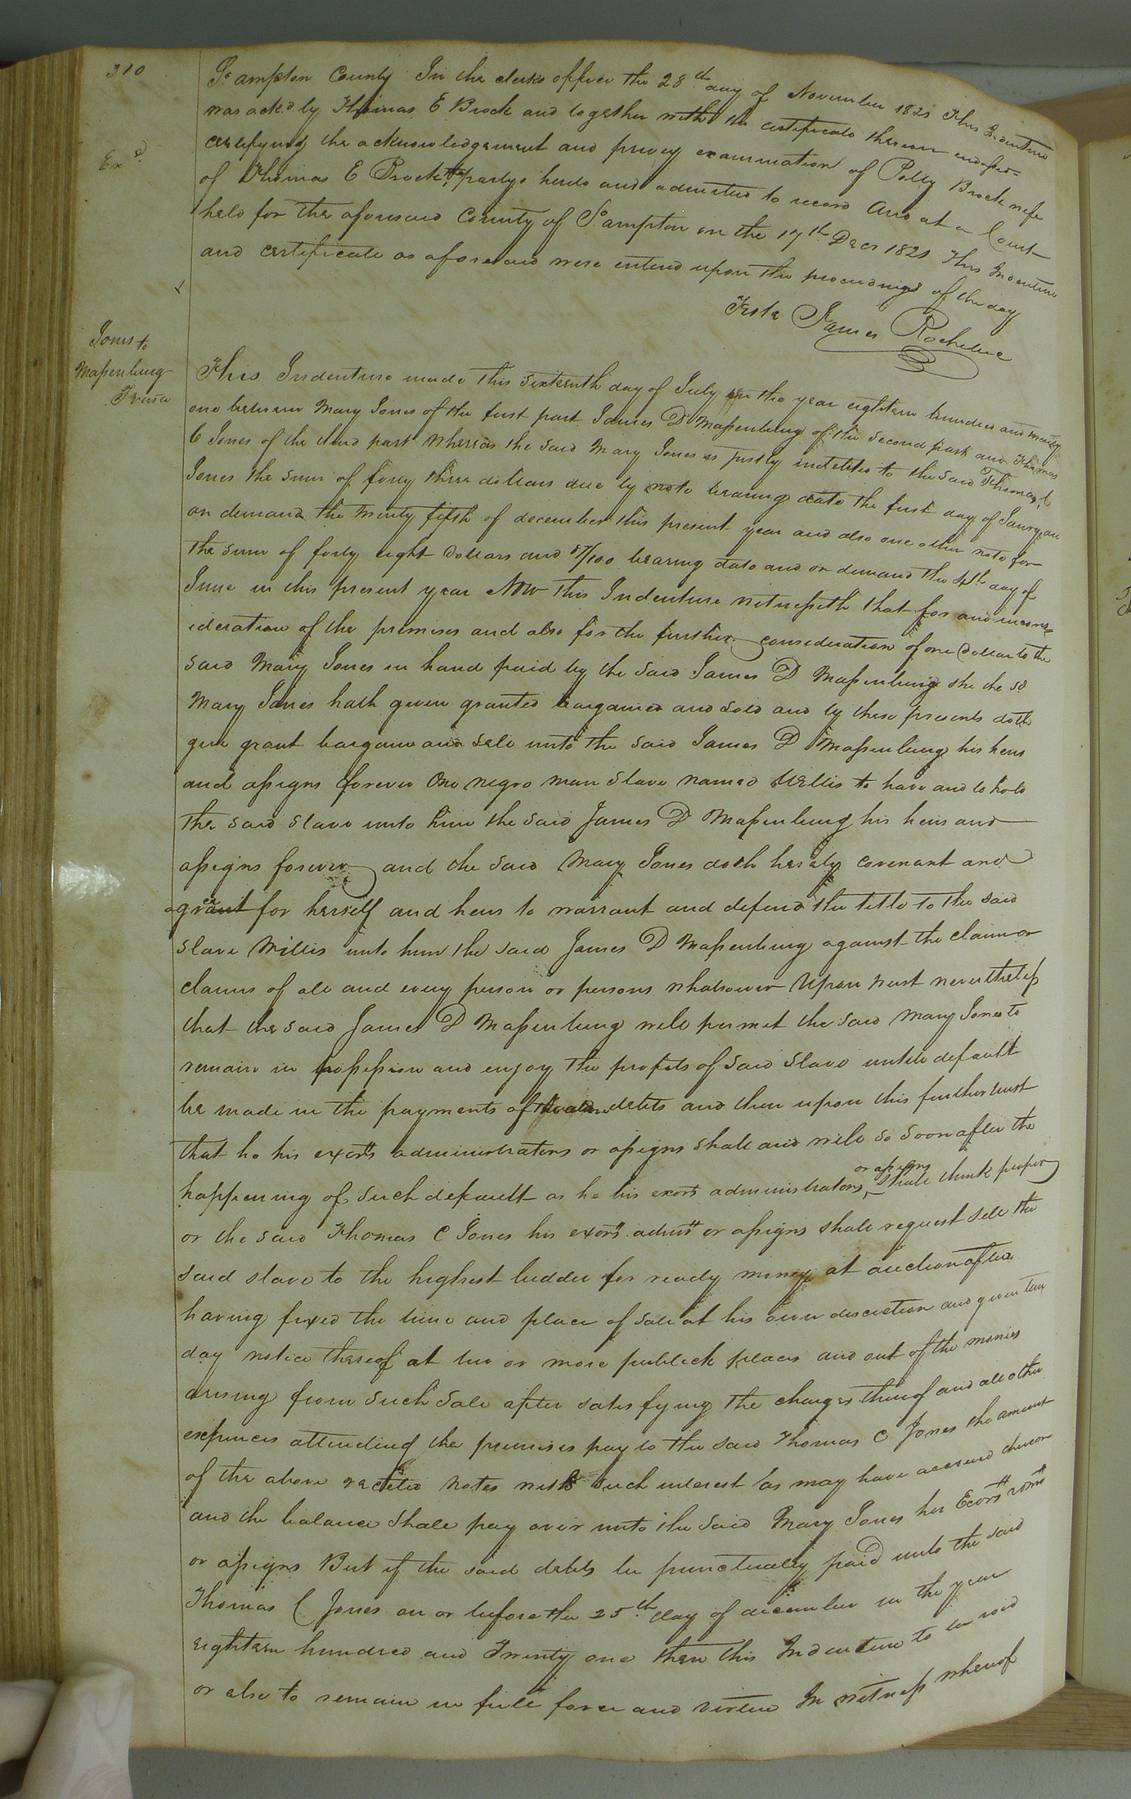 310
S°ampton County In the clerks office the 28th day of November 1821 This Indenture
was ackd by Thomas E Brock and together with the certificate thereon endorsed
certifying the acknowledgement and privy examination of Polly Brock wife
of Thomas E Brock partys hereto and admitted to record And at a Court
held for the aforesaid County of S°ampton on the 17th Decr 1821 This Indenture
and certificate as aforesaid were entered upon the proceedings of the day
Exd
Teste James Rochelle
Jones to
Massenburg
This Indenture made this sixteenth day of July in the year eighteen hundred and twenty
one between Mary Jones of the first part James D Massenburg of the second part and Thomas
C Jones of the third part Whereas the said Mary Jones is justly indebted to the said Thomas C
Jones the sum of forty three dollars due by note bearing date the first day of Janry an
on demand the twenty fifth of december this present year and also one other note for
the sum of forty eight Dollars and 57/100 bearing date and on demand the 4th day of
June in this present year Now this Indenture witnesseth that for and in cons
ideration of the premises and also for the further consideration of one Dollar to the
said Mary Jones in hand paid by the said James D Massenburg she the sd
Mary Jones hath given granted bargained and sold and by these presents doth
give grant bargain and sell unto the said James D Massenburg his heirs
and assigns forever One negro man slave named Willis to have and to hold
the said slave unto him the said James D Massenburg his heirs and
assigns forever and the said Mary Jones doth hereby covenant and
agree for herself and heirs to warrant and defend the title to the said
slave Willis unto him the said James D Massenburg against the claim or
claims of all and every person or persons whatsoever Upon trust nevertheless
that the said James D Massenburg will permit the said Mary Jones to
remain in possession and enjoy the profits of said slave untill default
be made in the payments of debts and then upon this further trust
that he his exors administrators or assigns shall and will so soon after the
happening of such default as he his exors administrators or assigns shall think proper
or the said Thomas C Jones his exors admrs or assigns shall request sell the
said slave to the highest bidder for ready money at auction after
having fixed the time and place of sale at his own discretion and given ten
day notice thereof at two or more publick places and out of the monies
arising from such sale after satisfying the charges thereof and all other
expences attending the premises pay to the said Thomas C Jones the amount
of the above recited notes with such interest as may have accrued thereon
and the balance shall pay over unto the said Mary Jones her Exors
or assigns But if the said debts be punctually paid unto the said
Thomas C Jones on or before the 25th day of december in the year
eighteen hundred and Twenty one then this Indenture to be void
or else to remain in full force and virtue In witness whereof